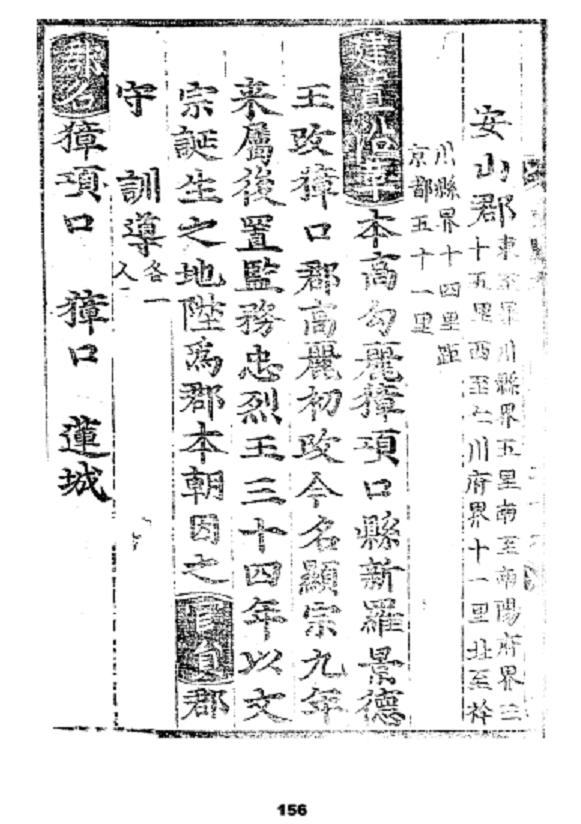 安山郡 東至果川縣界五里南至南陽府界三
十五里西至仁川府界十一里北至衿
川縣界十四里距
京都五十一里
建置沿革 本高勾麗獐項口縣新羅景德
王改獐口郡高麗初改今名顯宗九年
来屬後置監務忠烈王三十四年以文
宗誕生之地陞爲郡本朝因之 官員 郡
守 訓導 各一人
郡名 獐項口 獐口 蓮城
156